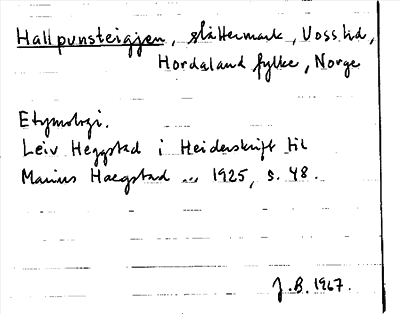 Hallpunsteigjen, slåttermark, Voss hd,
Hordaland fylke, Norge
Etymologi.
Leiv Heggstad i Heiderskrift til
Marius Haegstad ... 1925, s. 48.
J.B. 1967.